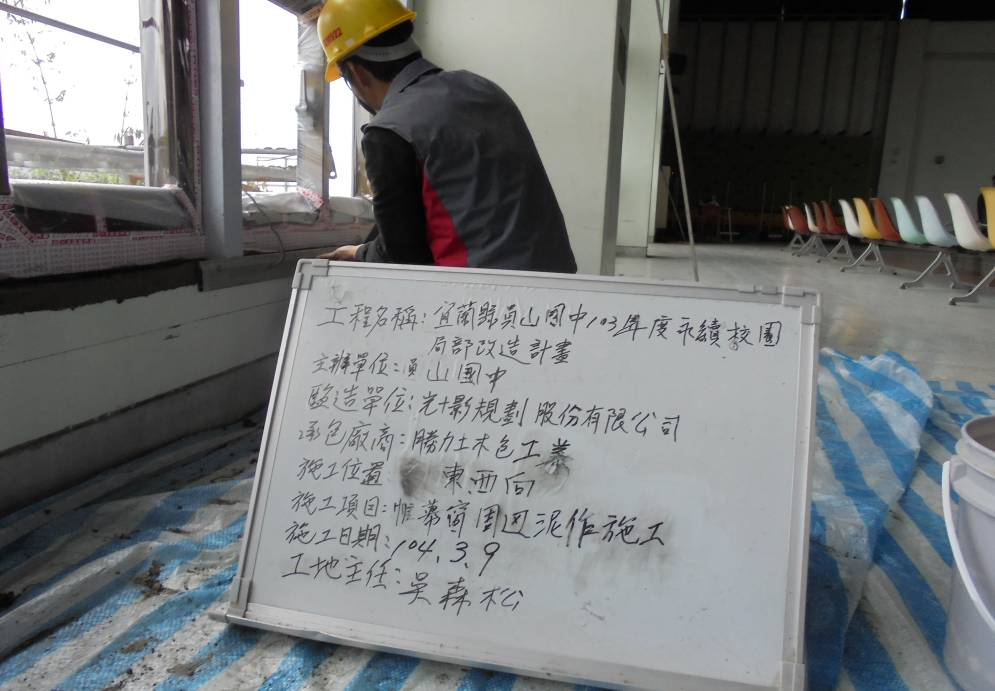 工程名稱:宜蘭縣員山國中103年度永續校園
局部改造計畫
主辦單位:員山國中
監造單位:光+影規劃股份有限公司
承包廠商:勝力土木包工業
施工位置 東.西向
施工項目:帷幕窗周邊泥作施工
施工日期:104.3.9
工地主任:吳森松